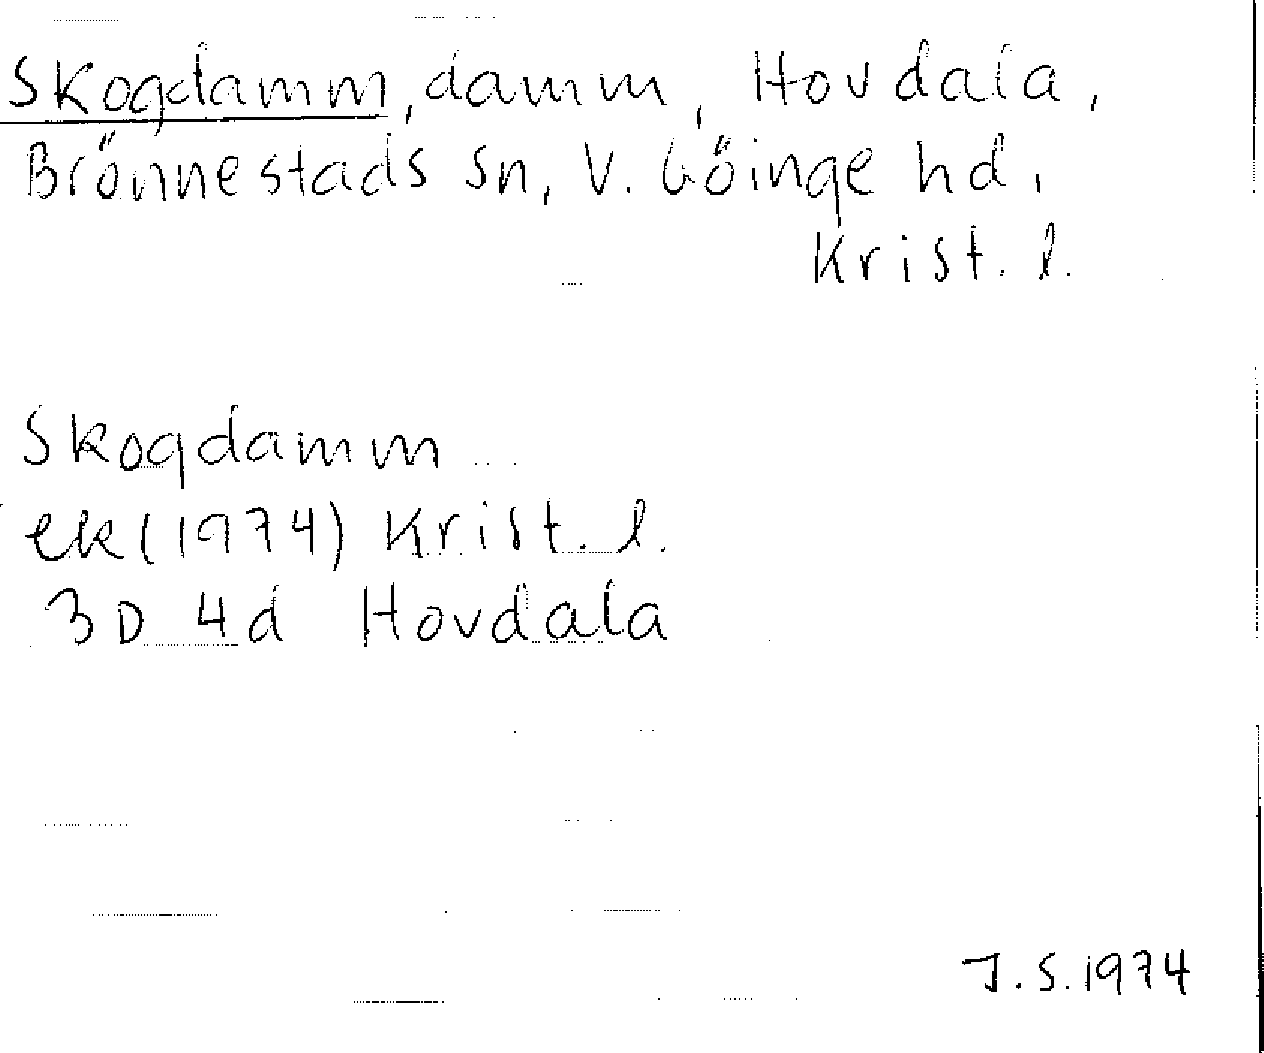 Skogdamm, damm, Hovdala,
Brönnestads sn, V. Göinge hd,
Krist. l.
Skogdamm
ek (1974) Krist. l.
3D 4d Hovdala
J.S. 1974